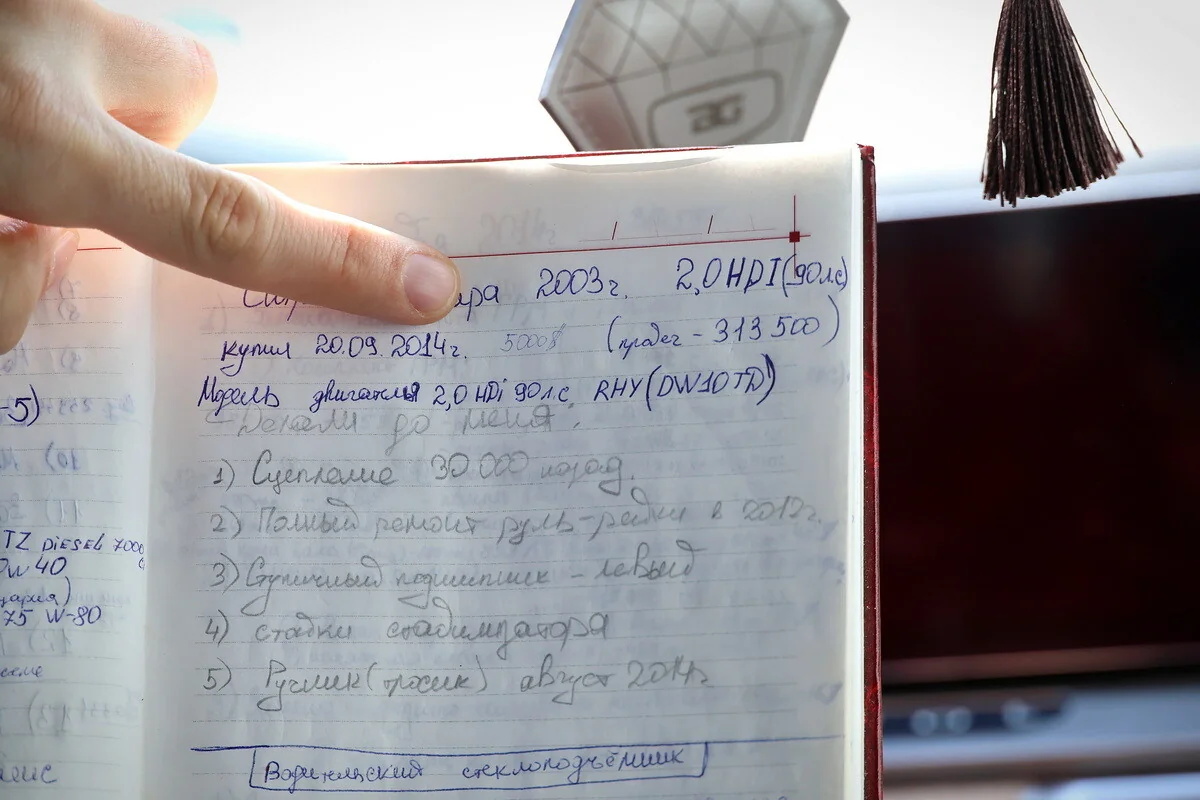 ара 2003г. 2,0 HDI (90 л.с)
купил 20.09.2014г. 5000$ (пробег - 313 500)
Модель двигателя 2,0 HDi 90 л.с. RHY (DW10TD)
Делали до меня:
1) Сцепление 30 000 назад.
2) Полный ремонт руль-рейки в 2012г.
3) Ступичный подшипник - левый
4) стойки стабилизатора
5) Ручник (тросик) август 2014г
Водительский стеклоподъёмник
-5)
TZ DIESEL 7000
0W40
75 W-80